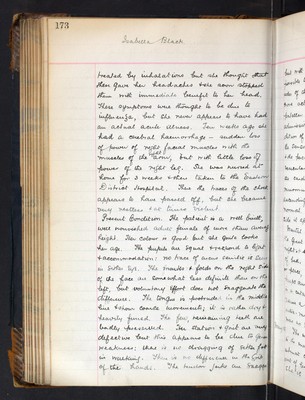 173
Isabella Black
treated by inhalations but she thought that
these gave her headaches & she soon stopped
them with immediate benefit to her head.
These symptoms were thought to be due to
influenza, but she never appears to have had
an actual acute illness. Ten weeks ago she
had a cerebral haemorrhage - sudden loss
of power of right facial muscles with the
muscles of the arm, but with little loss of
power of the right leg. She was nursed at
home for 3 weeks & then taken to the
District Hospital. There the traces of the shock
appears to have passed off, but she became
very restless & at times violent.
Present Condition. The patient is a well built,
well nourished active female of more than average
height. Her colour is good but she quite looks
her age. The pupils are equal & reactions to light
& accommodation; no trace of arcus senilis is seen
in either eye. The muscles & folds on the right side
of the face are somewhat less definite than on the
left, but voluntary effort does not exaggerate the
difference. The tongue is protruded in the middle
line & shows coarse movements; it is rather dry &
heavily furred. The few remaining teeth are
badly preserved. Her station & gait are very
defective but this appears to be due to gross
weakness; there is no dragging of either foot
in walking. There is no difference in the grip
of the hands. The tendon jerks are exagger